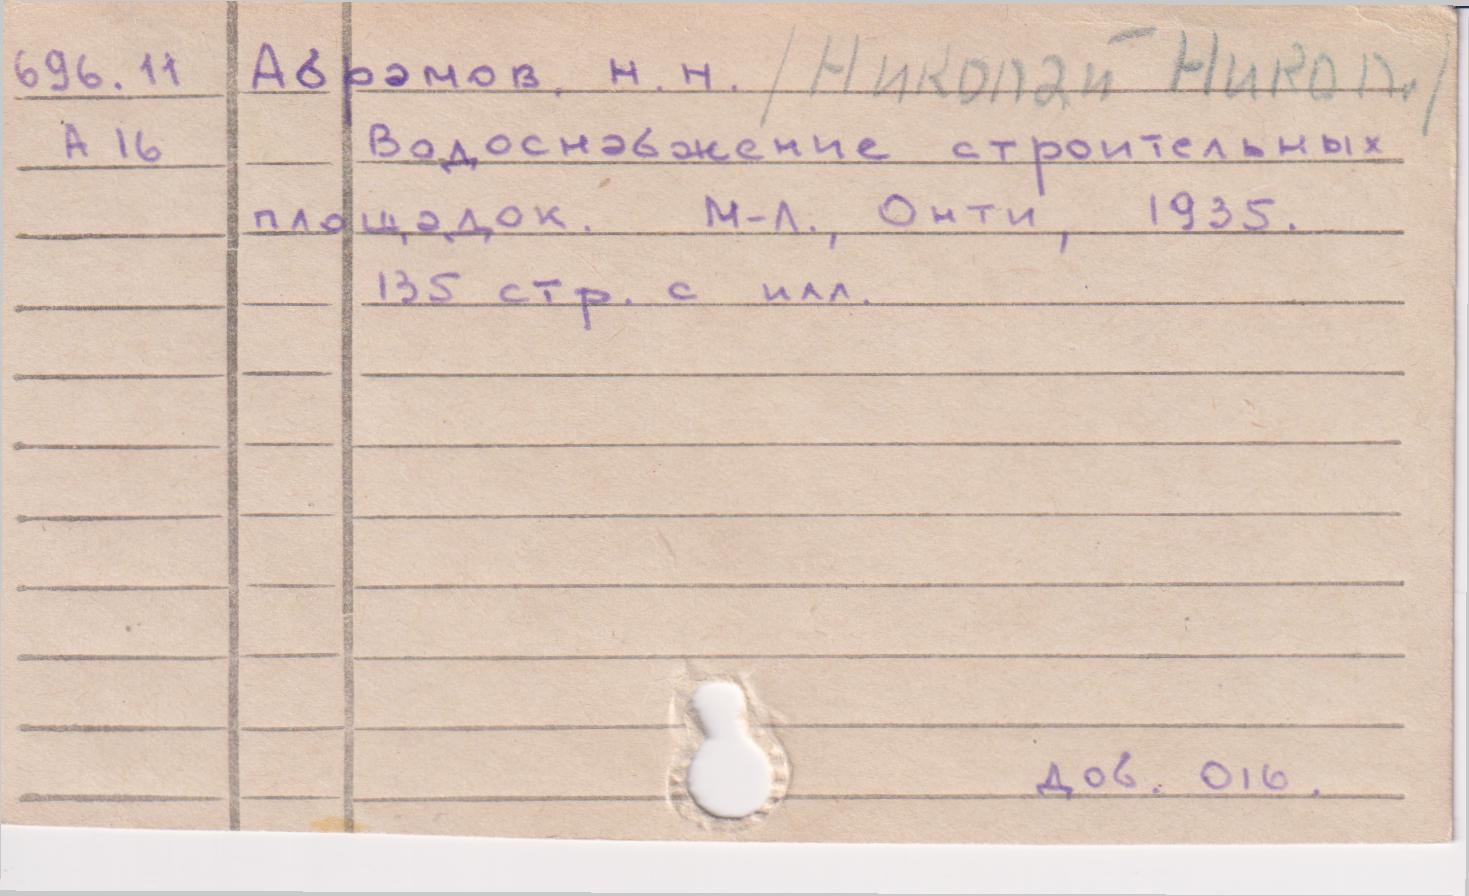 696.11 Абрамов, Н.Н. /Николай Никол./
А 16 Водоснабжение строительных
площадок. М-Л., Онти, 1935.
135 стр. с илл.
Доб. 016.